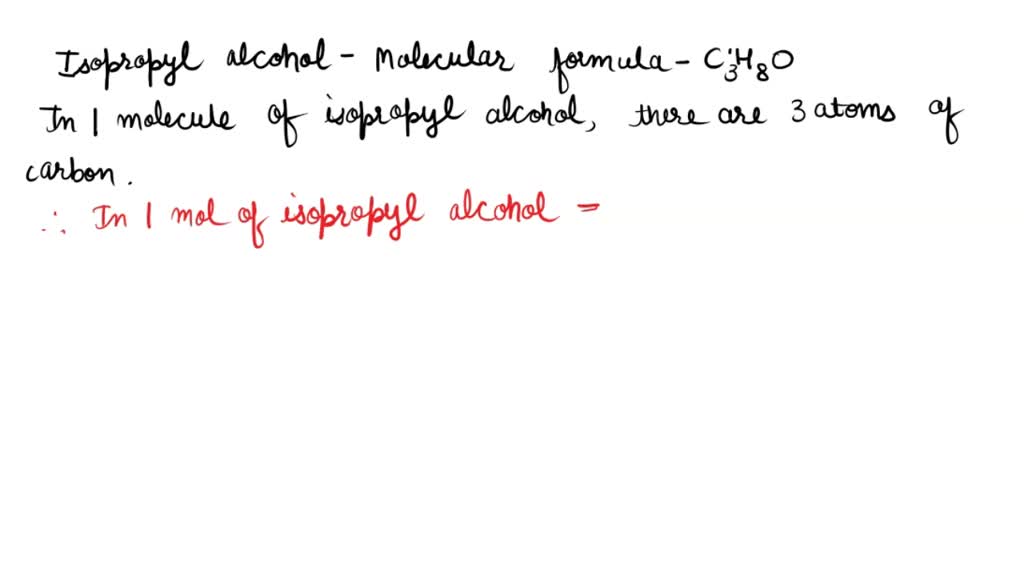 Isopropyl alcohol - Molecular formula - C₃H₈O
In 1 molecule of isopropyl alcohol, there are 3 atoms of
carbon.
∴ In 1 mol of isopropyl alcohol =